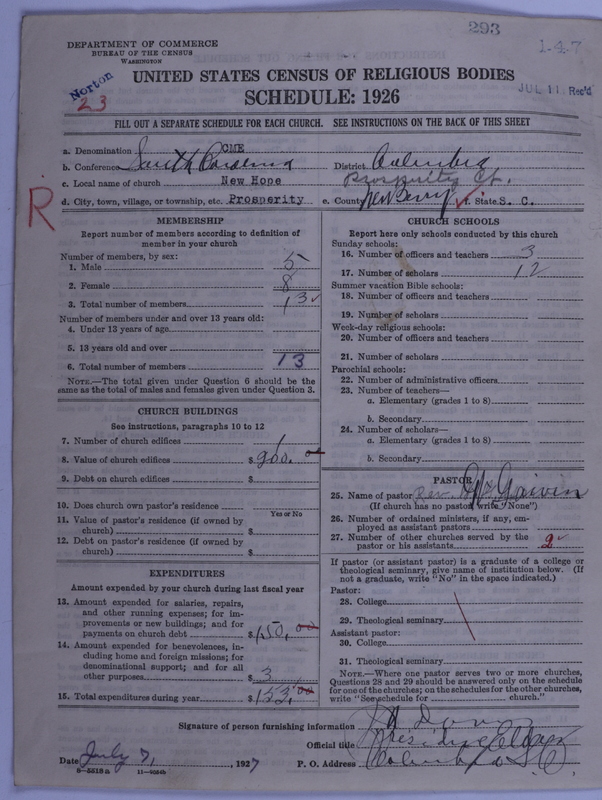 293
1-4-7
DEPARTMENT OF COMMERCE
BUREAU OF THE CENSUS
WASHINGTON
Norton
23
JUL 11 Rec'd
UNITED STATES CENSUS OF RELIGIOUS BODIES
SCHEDULE: 1926
FILL OUT A SEPARATE SCHEDULE FOR EACH CHURCH. SEE INSTRUCTIONS ON THE BACK OF THIS SHEET
a. Denomination CME
b. Conference South Carolina District Columbia
c. Local name of church New Hope Prosperity Ct.
d. City, town, village, or township, etc. Prosperity e. County NewBerry f. State S. C.
R
MEMBERSHIP
Report number of members according to definition of
member in your church
Number of members, by sex:
1. Male 5
2. Female 8
3. Total number of members 13
Number of members under and over 13 years old:
4. Under 13 years of age
5. 13 years old and over
6. Total number of members 13
NOTE.—The total given under Question 6 should be the
same as the total of males and females given under Question 3.
CHURCH BUILDINGS
See instructions, paragraphs 10 to 12
7. Number of church edifices 1
8. Value of church edifices $ 900.00
9. Debt on church edifices $
10. Does church own pastor's residence
Yes or No
11. Value of pastor's residence (if owned by
church) $
12. Debt on pastor's residence (if owned by
church) $
EXPENDITURES
Amount expended by your church during last fiscal year
13. Amount expended for salaries, repairs,
and other running expenses; for im-
provements or new buildings; and for
payments on church debt $ 150.00
14. Amount expended for benevolences, in-
cluding home and foreign missions; for
denominational support; and for all
other purposes $ 3
15. Total expenditures during year $ 153.00
CHURCH SCHOOLS
Report here only schools conducted by this church
Sunday schools:
16. Number of officers and teachers 3
17. Number of scholars 12
Summer vacation Bible schools:
18. Number of officers and teachers
19. Number of scholars
Week-day religious schools:
20. Number of officers and teachers
21. Number of scholars
Parochial schools:
22. Number of administrative officers
23. Number of teachers—
a. Elementary (grades 1 to 8)
b. Secondary
24. Number of scholars—
a. Elementary (grades 1 to 8)
b. Secondary
PASTOR
25. Name of pastor Rev.
(If church has no pastor, write "None")
26. Number of ordained ministers, if any, em-
ployed as assistant pastors
27. Number of other churches served by the
pastor or his assistants 2
If pastor (or assistant pastor) is a graduate of a college or
theological seminary, give name of institution below. (If
not a graduate, write "No" in the space indicated.)
Pastor:
28. College
29. Theological seminary
Assistant pastor:
30. College
31. Theological seminary
NOTE.—Where one pastor serves two or more churches,
Questions 28 and 29 should be answered only on the schedule
for one of the churches; on the schedules for the other churches,
write "See schedule for church."
Signature of person furnishing information
Official title Presiding Elder
Date July 7, 1927 P. O. Address Columbia S C
8-5518a 11-9554b